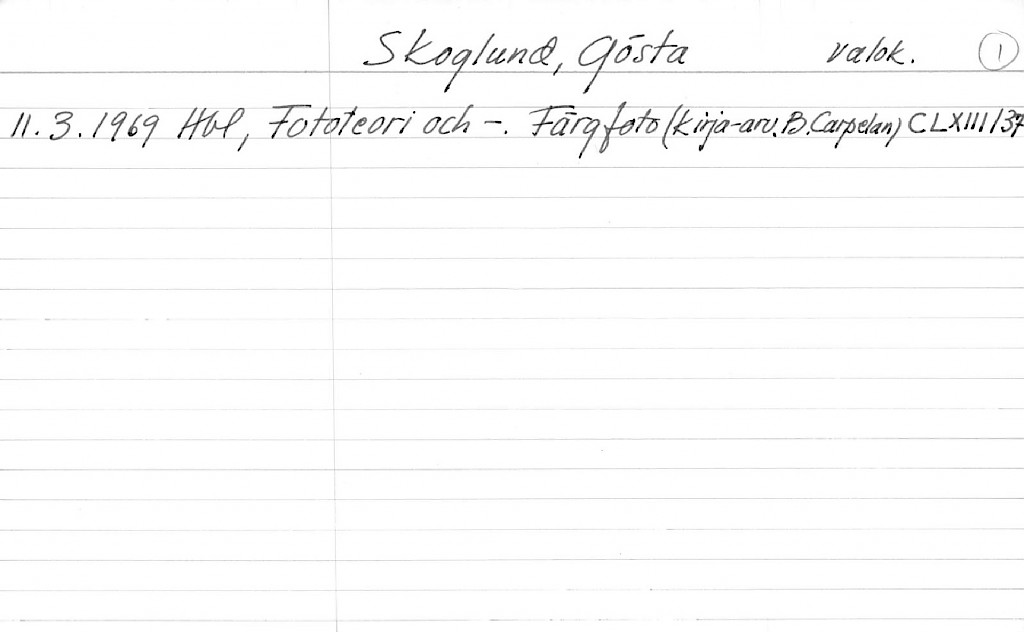 Skoglund, Gösta valok. 1
11.3.1969 Hbl, Fototeori och -. Färgfoto (Kirja-arv. B. Carpelan) CLXIII/37